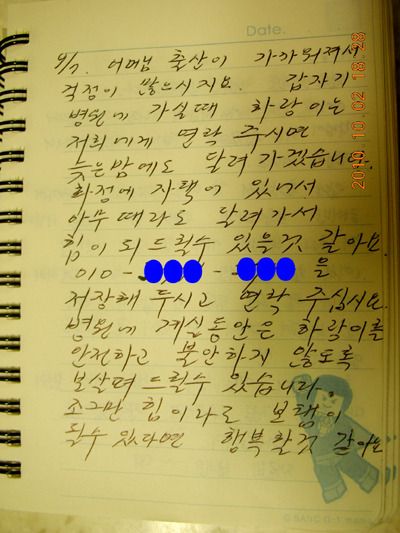 Date.
2010 10 02 18:28
9/7. 어머님 출산이 가까워져서
걱정이 많으시지요. 갑자기
병원에 가실때 하랑이는
저희에게 연락 주시면
늦은밤에도 달려가겠습니다.
화정에 자택이 있어서
아무때라도 달려가서
힘이 되드릴수 있을것 같아요.
010- - 을
저장해 두시고 연락 주십시요.
병원에 계실동안은 하랑이를
안전하고 불안하지 않도록
보살펴 드릴수 있습니다
조그만 힘이라도 보탬이
될수 있다면 행복할것 같아요